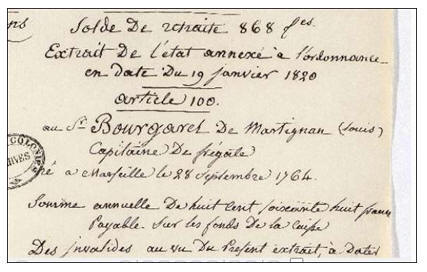 ns
Solde De retraite 868 f.es
Extrait De l'état annexé à l'ordonnance
en date Du 19 Janvier 1820
article 100.
au Sr. Bourgarel De Martignan (Louis)
Capitaine De frégate
COLONIE
RVES
né a Marseille le 28 Septembre 1764.
Somme annuelle De huit Cent soixante huit francs
Payable sur les fonds de la Caisse
Des invalides au vu Du Présent extrait, à Dater